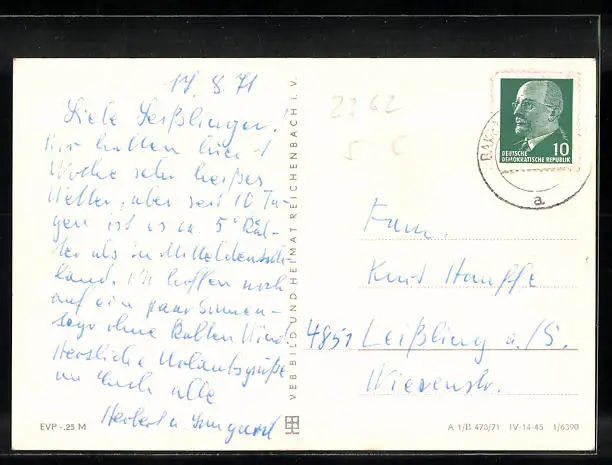 17. 8. 71
Liebe Leißlinger!
Wir hatten hier 1
Woche sehr heißes
Wetter, aber seit 10 Ta-
gen ist es ca. 5° käl-
ter als in Mitteldeutsch-
land. Wir hoffen noch
auf ein paar Sonnen-
tage ohne kalten Wind.
Herzliche Urlaubsgrüße
an Euch alle
Herbert u. Irmgard
EVP -,25 M
VEB BILD UND HEIMAT REICHENBACH I. V.
2362
5 C
DEUTSCHE
DEMOKRATISCHE REPUBLIK
10
a
Fam.
Kurt Hauffe
4851 Leißling a./S.
Wiesenstr.
A 1/B 473/71 IV-14-45 1/6390